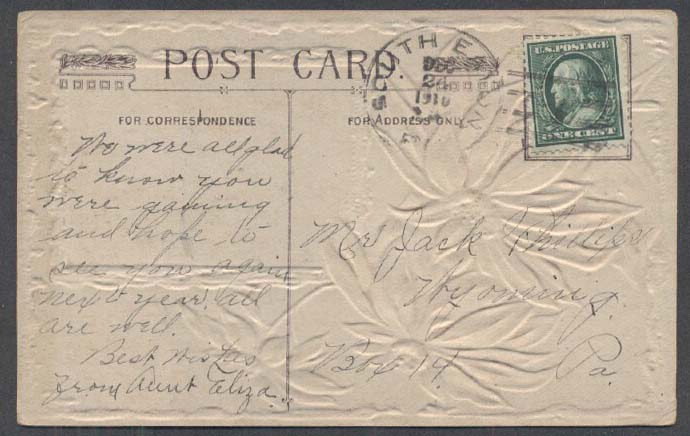 POST CARD.
SOUTH E
DEC
24
1910
U.S. POSTAGE
ONE CENT
FOR CORRESPONDENCE
FOR ADDRESS ONLY
We were all glad
to know you
were gaining
and hope to
see you again
next year. all
are well.
Best Wishes
from Aunt Eliza.
Mrs Jack Phillips
Wyoming.
Box 14 Pa.